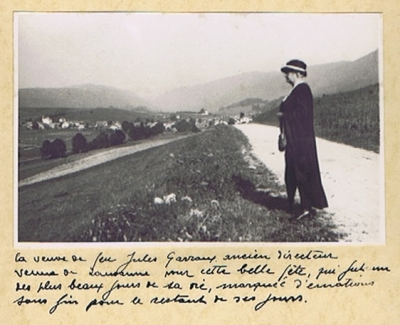 La veuve de feu Jules Garraux ancien directeur
venue de Lausanne pour cette belle fête, qui fut un
des plus beaux jours de sa vie, marquée d'émotions
sans fin pour le restant de ses jours.